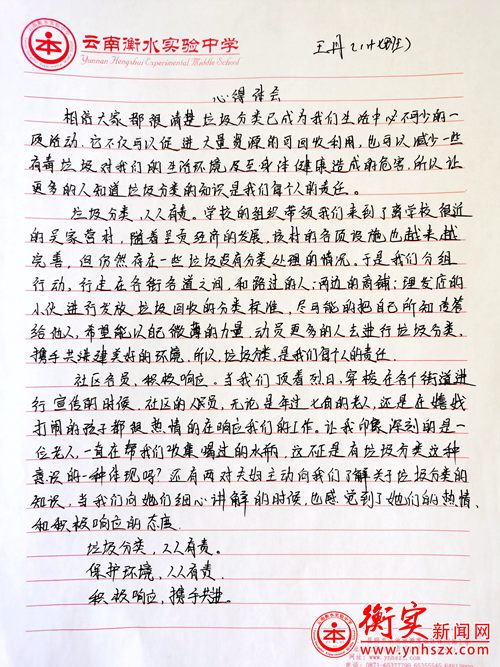 云南衡水实验中学
Yunnan Hengshui Experimental Middle School
王丹
心得体会
相信大家都很清楚垃圾分类已成为我们生活中必不可少的一
项活动，它不仅可以促进大量资源的可回收利用，也可以减少一些
有毒垃圾对我们的生活环境及至身体健康造成的危害，所以让
更多的人知道垃圾分类的知识是我们每个人的责任。
垃圾分类，人人有责。学校的组织带领我们来到了离学校很近
的吴家营村，随着呈贡经济的发展，该村的各项设施也越来越
完善，但仍然存在一些垃圾没有分类处理的情况。于是我们分组
行动，行走在各街各道之间，和路过的人；两边的商铺；理发店的
小伙进行发放垃圾回收的分类标准，尽可能的把自己所知传答
给他人，希望能以自己微薄的力量，动员更多的人去进行垃圾分类，
携手共建美好的环境，所以垃圾分类，是我们每个人的责任。
社区各员，积极响应。当我们顶着烈日，穿梭在各个街道进
行宣传的时候，社区的人员，无论是年过七旬的老人，还是在嬉戏
打闹的孩子都很热情的在响应我们的工作。让我印象深刻的是一
位老人，一直在帮我们收集喝过的水瓶，这不正是有垃圾分类这种
意识的一种体现吗？还有两对夫妇主动向我们了解关于垃圾分类的
知识，当我们向她们细心讲解的时候，也感觉到了她们的热情、
和积极响应的态度
垃圾分类，人人有责。
保护环境，人人有责
积极响应，携手共进。
衡实新闻网
www.ynhszx.com